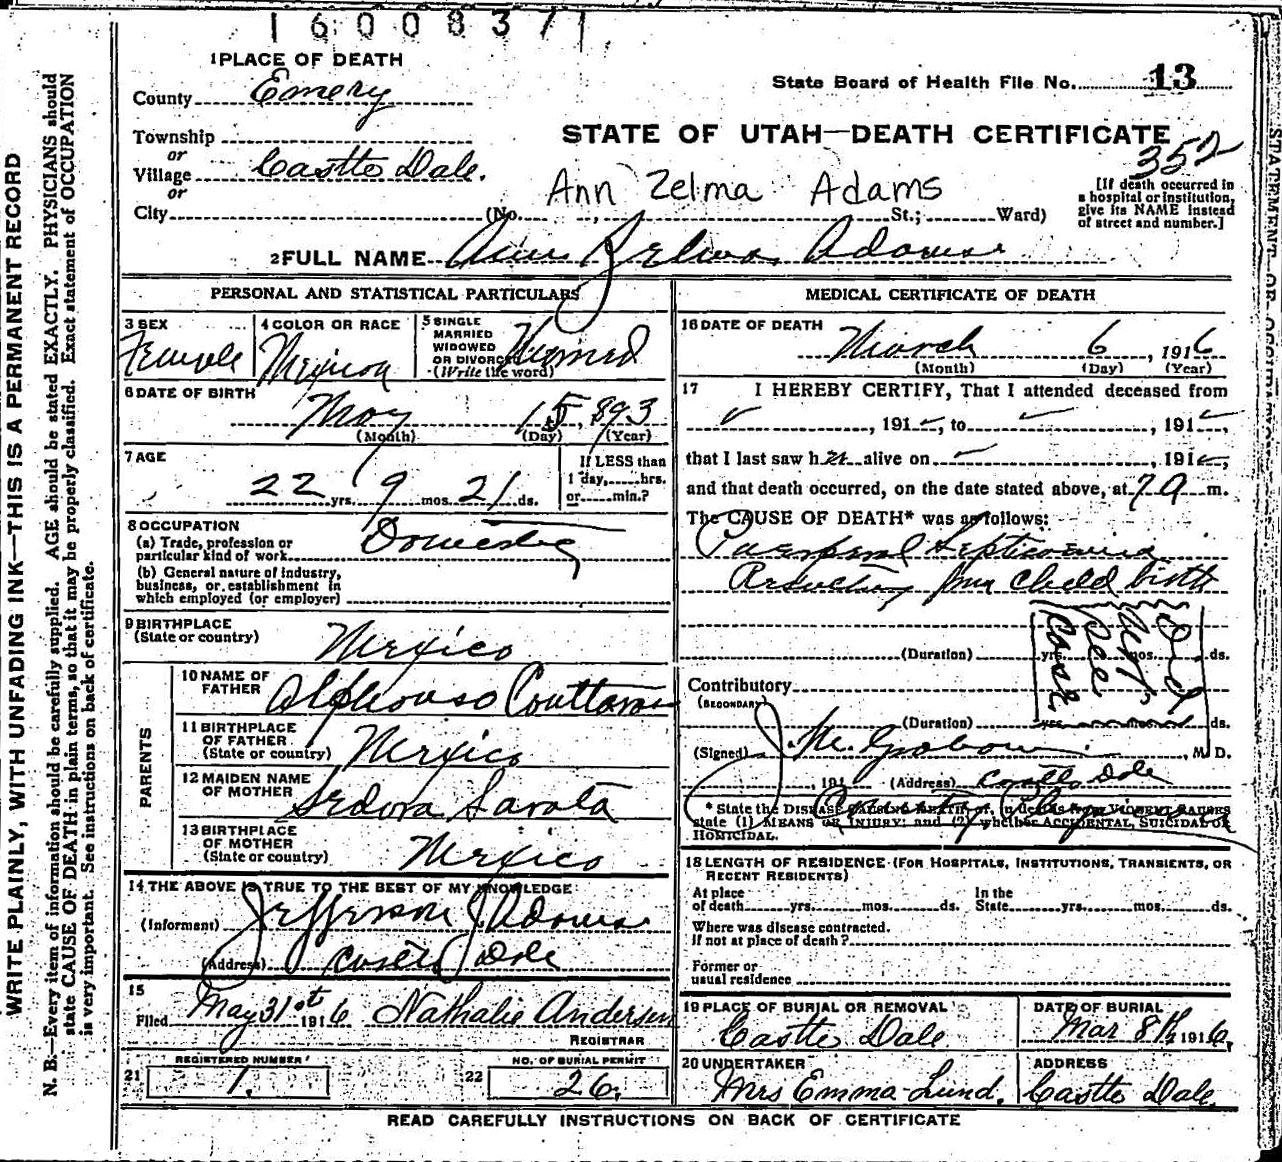 16008371
1 PLACE OF DEATH
State Board of Health File No. 13
County Emery
Township
or
Village Castle Dale.
or
City (No. , St.; Ward)
STATE OF UTAH—DEATH CERTIFICATE
352
Ann Zelma Adams
[If death occurred in a hospital or institution, give its NAME instead of street and number.]
2 FULL NAME Ann Zelma Adams
PERSONAL AND STATISTICAL PARTICULARS
3 SEX Female
4 COLOR OR RACE Mexican
5 SINGLE MARRIED WIDOWED OR DIVORCED (Write the word)
6 DATE OF BIRTH May 15, 1893
(Month) (Day) (Year)
7 AGE 22 yrs. 9 mos. 21 ds.
If LESS than 1 day, hrs. or min.?
8 OCCUPATION
(a) Trade, profession or particular kind of work Domestic
(b) General nature of industry, business, or establishment in which employed (or employer)
9 BIRTHPLACE (State or country) Mexico
PARENTS
10 NAME OF FATHER Alphonso
11 BIRTHPLACE OF FATHER (State or country) Mexico
12 MAIDEN NAME OF MOTHER
13 BIRTHPLACE OF MOTHER (State or country) Mexico
14 THE ABOVE IS TRUE TO THE BEST OF MY KNOWLEDGE
(Informant) Jefferson J Adams
(Address) Castle Dale
15 Filed May 31st 1916 Nathalie Andersen
REGISTRAR
21 REGISTERED NUMBER 1.
22 NO. OF BURIAL PERMIT 26.
MEDICAL CERTIFICATE OF DEATH
16 DATE OF DEATH March 6, 1916
(Month) (Day) (Year)
17 I HEREBY CERTIFY, That I attended deceased from
, 191 , to , 191 ,
that I last saw her alive on , 191 ,
and that death occurred, on the date stated above, at 7 a m.
The CAUSE OF DEATH* was as follows:
Puerperal Septicemia
Resulting from Child birth
(Duration) yrs. mos. ds.
Did not see case
Contributory
(SECONDARY)
(Duration) yrs. mos. ds.
(Signed) J. M. , M. D.
, 191 (Address) Castle Dale
County Physician
* State the DISEASE CAUSING DEATH, or, in deaths from VIOLENT CAUSES state (1) MEANS OF INJURY; and (2) whether ACCIDENTAL, SUICIDAL OR HOMICIDAL.
18 LENGTH OF RESIDENCE (FOR HOSPITALS, INSTITUTIONS, TRANSIENTS, OR RECENT RESIDENTS)
At place of death yrs. mos. ds. In the State yrs. mos. ds.
Where was disease contracted. If not at place of death?
Former or usual residence
19 PLACE OF BURIAL OR REMOVAL Castle Dale
DATE OF BURIAL Mar 8th 1916,
20 UNDERTAKER Mrs Emma Lund.
ADDRESS Castle Dale
READ CAREFULLY INSTRUCTIONS ON BACK OF CERTIFICATE
WRITE PLAINLY, WITH UNFADING INK—THIS IS A PERMANENT RECORD
N. B.—Every item of information should be carefully supplied. AGE should be stated EXACTLY. PHYSICIANS should
state CAUSE OF DEATH in plain terms, so that it may be properly classified. Exact statement of OCCUPATION
is very important. See instructions on back of certificate.